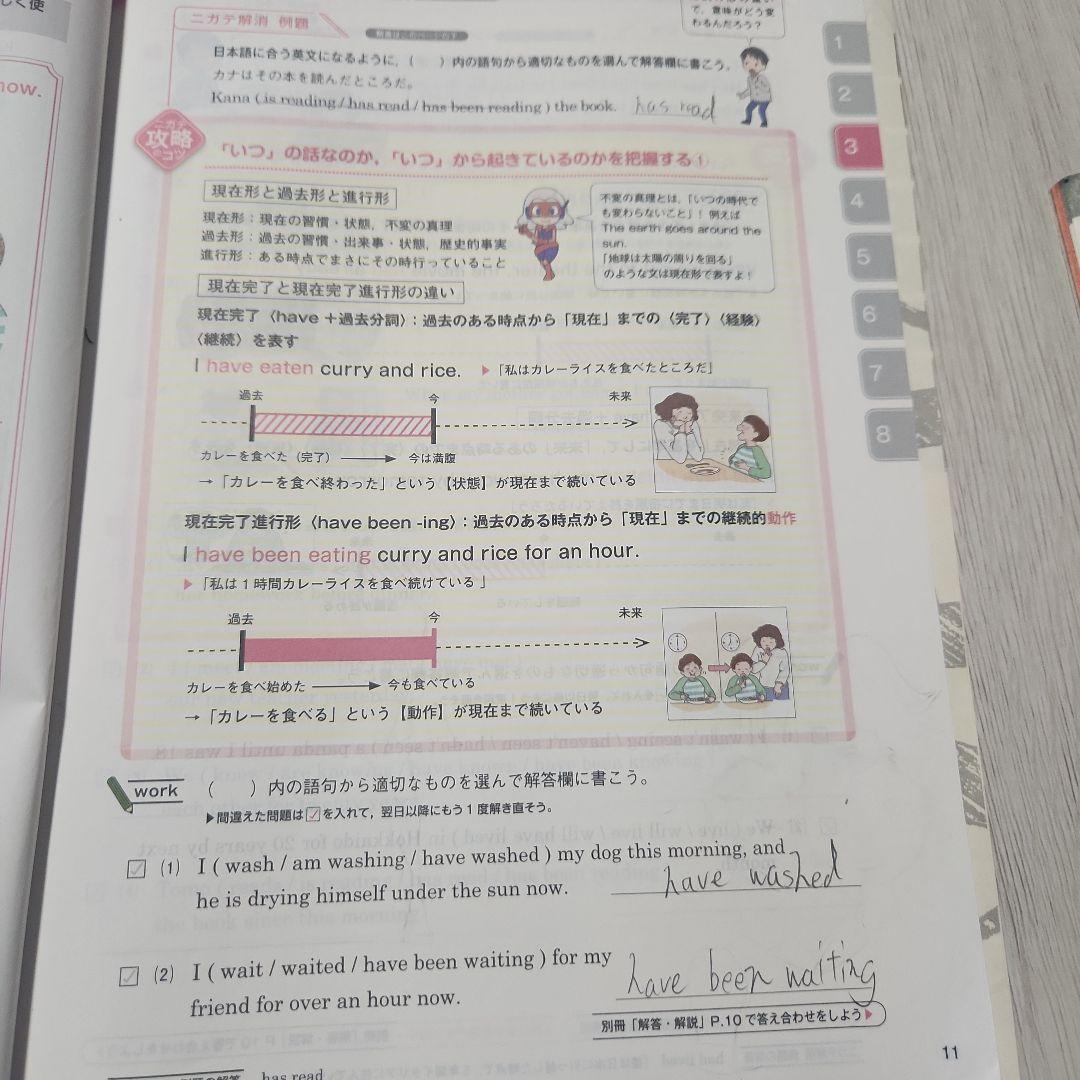 しく使
now.
で，意味がどう変
わるんだろう？
ニガテ解消 例題
日本語に合う英文になるように，（　）内の語句から適切なものを選んで解答欄に書こう。
カナはその本を読んだところだ。
Kana ( is reading / has read / has been reading ) the book. has read
ニガテ
攻略
のコツ
「いつ」の話なのか，「いつ」から起きているのかを把握する①
現在形と過去形と進行形
現在形：現在の習慣・状態，不変の真理
過去形：過去の習慣・出来事・状態，歴史的事実
進行形：ある時点でまさにその時行っていること
不変の真理とは，「いつの時代で
も変わらないこと」！ 例えば
The earth goes around the
sun.
「地球は太陽の周りを回る」
のような文は現在形で表すよ！
現在完了と現在完了進行形の違い
現在完了〈have ＋過去分詞〉：過去のある時点から「現在」までの〈完了〉〈経験〉
〈継続〉を表す
I have eaten curry and rice. ▶「私はカレーライスを食べたところだ」
過去 今 未来
カレーを食べた（完了） → 今は満腹
→「カレーを食べ終わった」という【状態】が現在まで続いている
現在完了進行形〈have been -ing〉：過去のある時点から「現在」までの継続的動作
I have been eating curry and rice for an hour.
▶「私は1時間カレーライスを食べ続けている」
過去 今 未来
カレーを食べ始めた → 今も食べている
→「カレーを食べる」という【動作】が現在まで続いている
work （　）内の語句から適切なものを選んで解答欄に書こう。
▶間違えた問題は☑を入れて，翌日以降にもう1度解き直そう。
(1) I ( wash / am washing / have washed ) my dog this morning, and
he is drying himself under the sun now. have washed
(2) I ( wait / waited / have been waiting ) for my
friend for over an hour now. have been waiting
別冊「解答・解説」P.10で答え合わせをしよう▶
has read
11
1
2
3
4
5
6
7
8